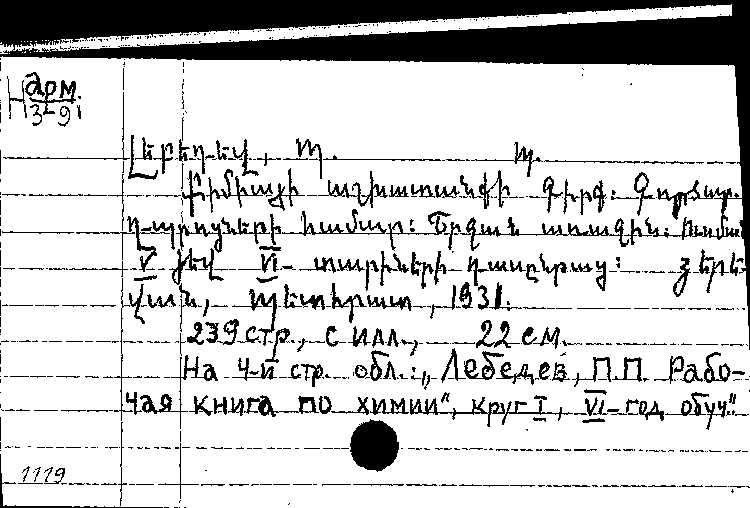 Н арм.
3-91
Լեբեդեվ, Պ. Պ.
Քիմիայի աշխատանքի գիրք: Գործար.
դպրոցների համար: Շրջան առաջին: Ուսման
V յեվ VI- տարիների դասընթաց: Յերե-
վան, Պետհրատ, 1931.
239 стр., с илл., 22 см.
На 4-й стр. обл.: „Лебедев, П.П. Рабо-
чая книга по химии", круг I, VI-год обуч."
1119